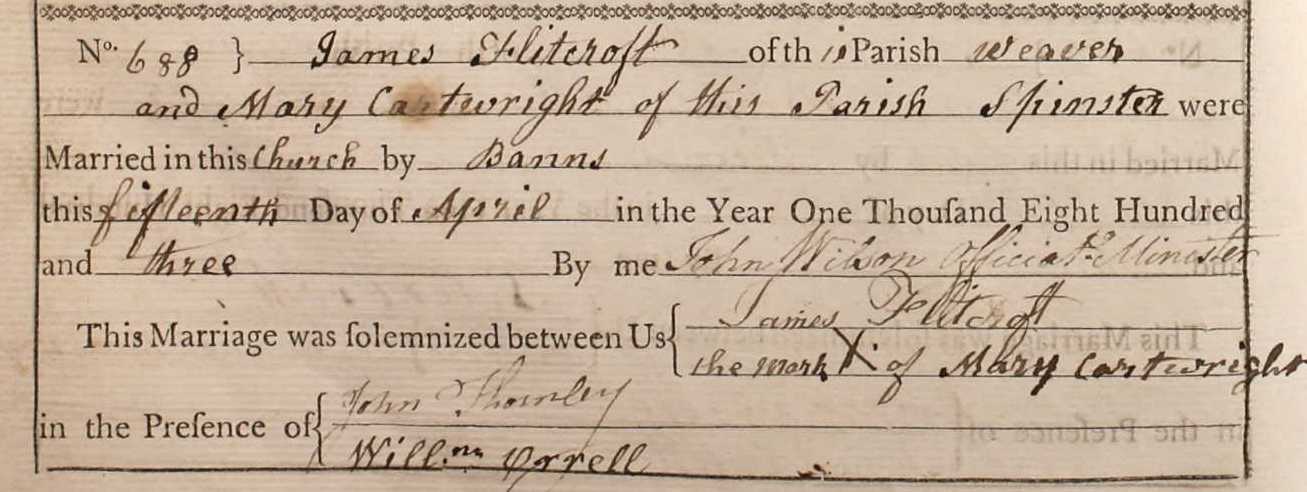 No. 688 } James Flitcroft of this Parish Weaver
and Mary Cartwright of this Parish Spinster were
Married in this Church by Banns
this fifteenth Day of April in the Year One Thouſand Eight Hundred
and three By me John Wilson Officiat.g Minister
This Marriage was ſolemnized between Us { James Flitcroft
the mark X of Mary Cartwright
in the Preſence of { John Thornley
Will.m Orrell